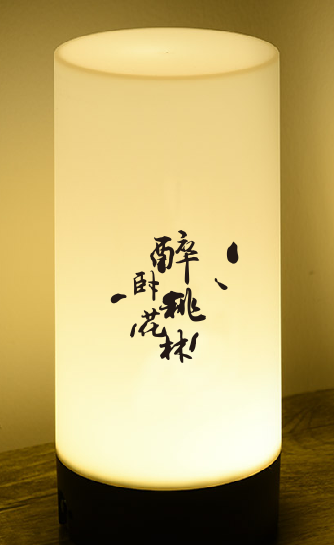 醉桃林
卧花